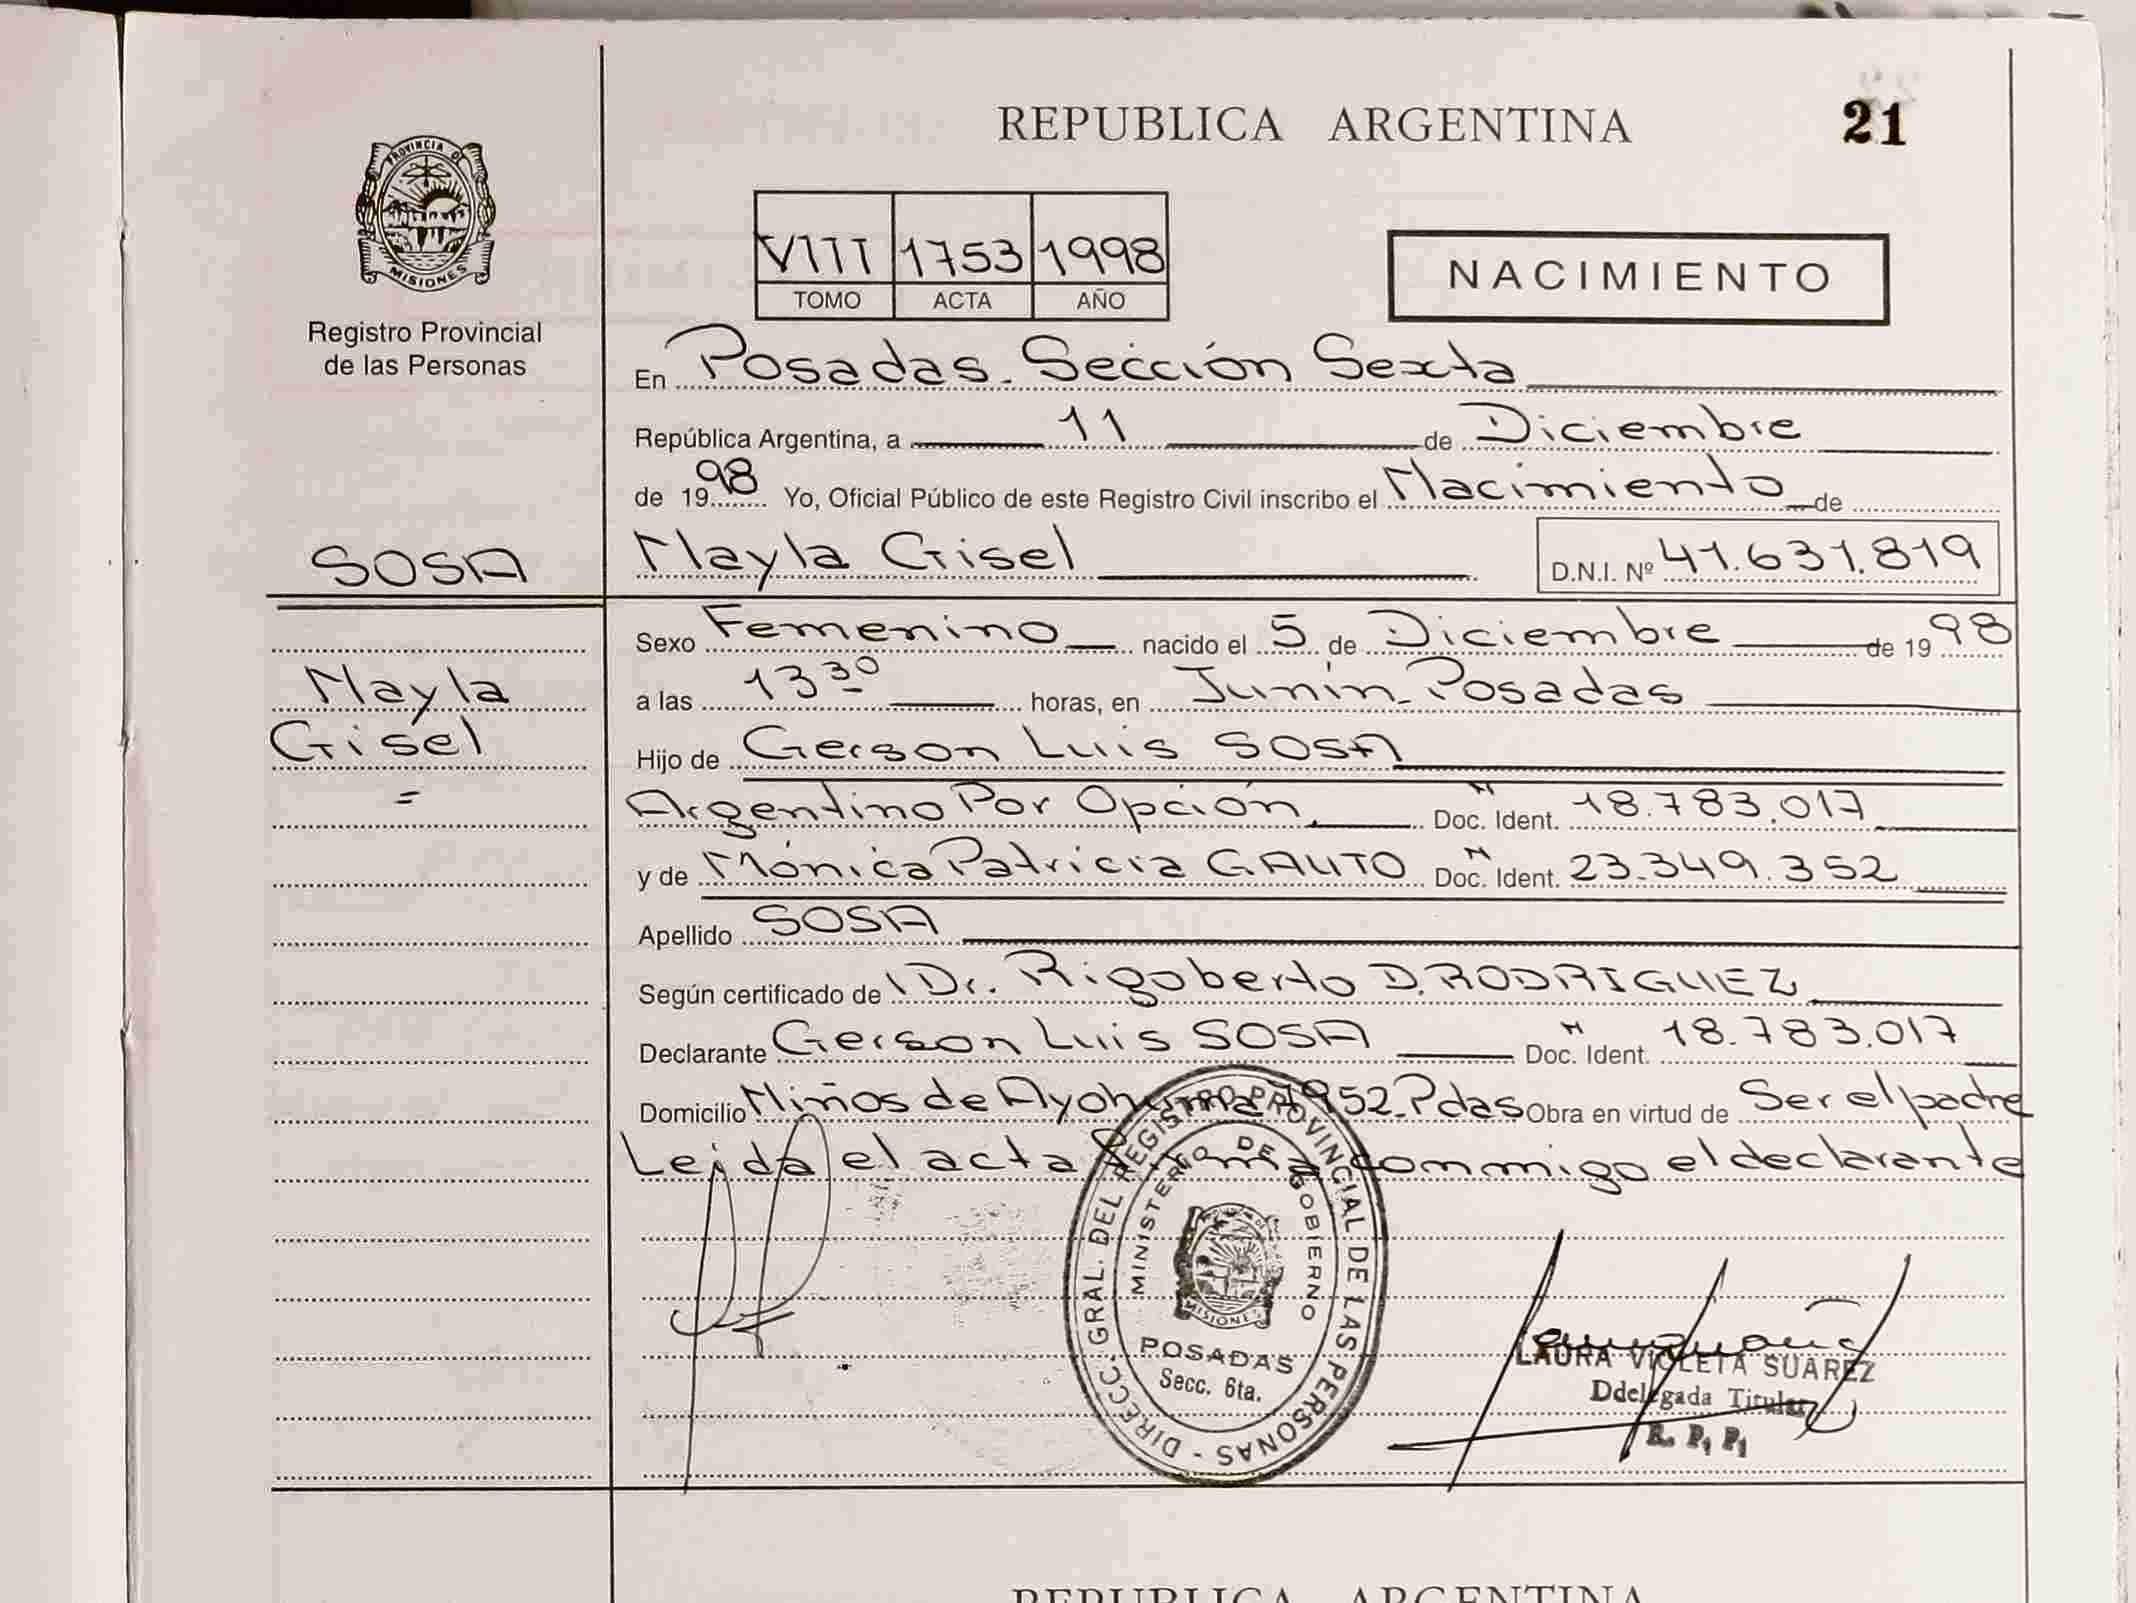 REPUBLICA ARGENTINA
21
PROVINCIA DE
MISIONES
Registro Provincial
de las Personas
VIII 1753 1998
TOMO ACTA AÑO
NACIMIENTO
En Posadas. Sección Sexta
República Argentina, a 11 de Diciembre
de 1998 Yo, Oficial Público de este Registro Civil inscribo el Nacimiento de
SOSA
Mayla Gisel D.N.I. Nº 41.631.819
Sexo Femenino nacido el 5 de Diciembre de 1998
Mayla
a las 13 30 horas, en Junín. Posadas
Gisel
Hijo de Gerson Luis SOSA
=
Argentino Por Opción, Doc. Ident. 18.783.017
y de Mónica Patricia GAUTO Doc. Ident. 23.349.352
Apellido SOSA
Según certificado de Dr. Rigoberto D. RODRIGUEZ
Declarante Gerson Luis SOSA Doc. Ident. 18.783.017
Domicilio Niños de Ayohuma 1952. Pdas Obra en virtud de Ser el padre
Leida el acta Firma conmigo el declarante
DIRECC. GRAL. DEL REGISTRO PROVINCIAL DE LAS PERSONAS -
MINISTERIO DE GOBIERNO
MISIONES
POSADAS
Secc. 6ta.
LAURA VIOLETA SUAREZ
Ddelegada Titular
R. P. P.
REPUBLICA ARGENTINA